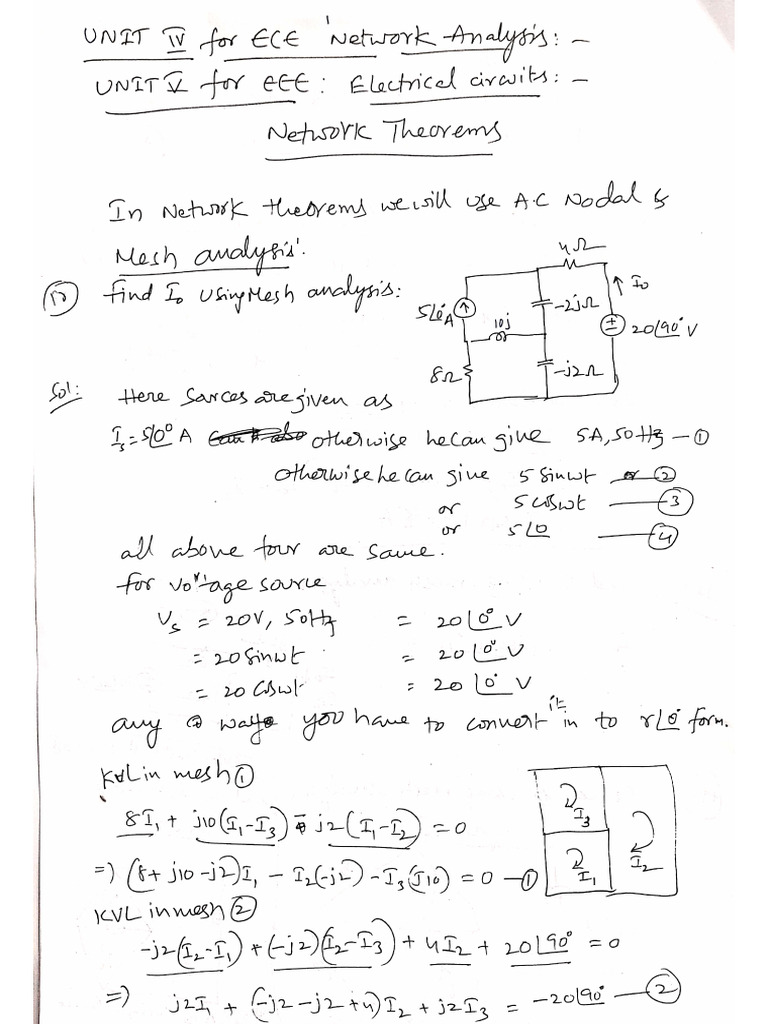 UNIT IV for ECE 'Network Analysis: -
UNIT V for EEE: Electrical circuits: -
Network Theorems
In Network theorems we will use A.C Nodal &
Mesh analysis'.
12) find I₀ using Mesh analysis:
4Ω
↑ I₀
5∠0° A
10j
-2jΩ
20∠90° V
8Ω
-j2Ω
Sol: Here Sources are given as
Iₛ = 5∠0° A otherwise he can give 5A, 50Hz — ①
otherwise he can give 5 Sinwt — ②
or 5 coswt — ③
or 5∠0 — ④
all above four are same.
for voltage source
Vₛ = 20V, 50Hz = 20∠0° V
= 20 Sinwt = 20∠0° V
= 20 Coswt = 20∠0° V
any way you have to convert it in to r∠θ form.
KVL in mesh ①
8I₁ + j10(I₁-I₃) - j2(I₁-I₂) = 0
I₃
I₂
I₁
=) (8+j10-j2)I₁ - I₂(-j2) - I₃(j10) = 0 — ①
KVL in mesh ②
-j2(I₂-I₁) + (-j2)(I₂-I₃) + 4I₂ + 20∠90° = 0
=) j2I₁ + (-j2-j2+4)I₂ + j2I₃ = -20∠90° — ②